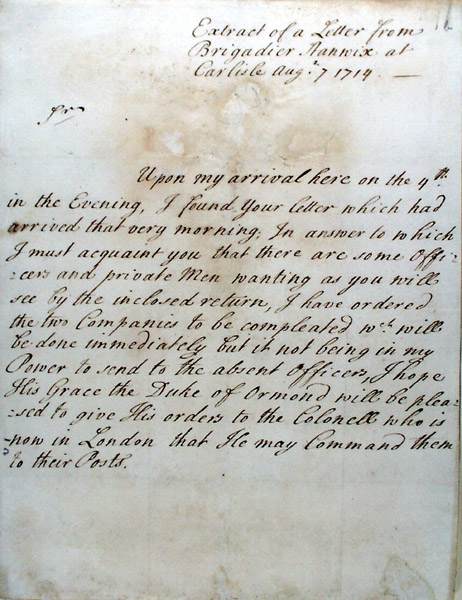 Extract of a Letter from
Brigadier Stanwix at
Carlisle Aug.ᵗ 7 1714. —
Sr.
Upon my arrival here on the 4th.
in the Evening, I found Your letter which had
arrived that very morning; In answer to which
I must acquaint you that there are some Offi-
-cers and private Men wanting as you will
see by the inclosed return, I have ordered
the two Companies to be compleated wch. will
be done immediately but it not being in my
Power to send to the absent Officers, I hope
His Grace the Duke of Ormond will be plea-
-sed to give His orders to the Colonell who is
now in London that He may Command them
to their Posts.